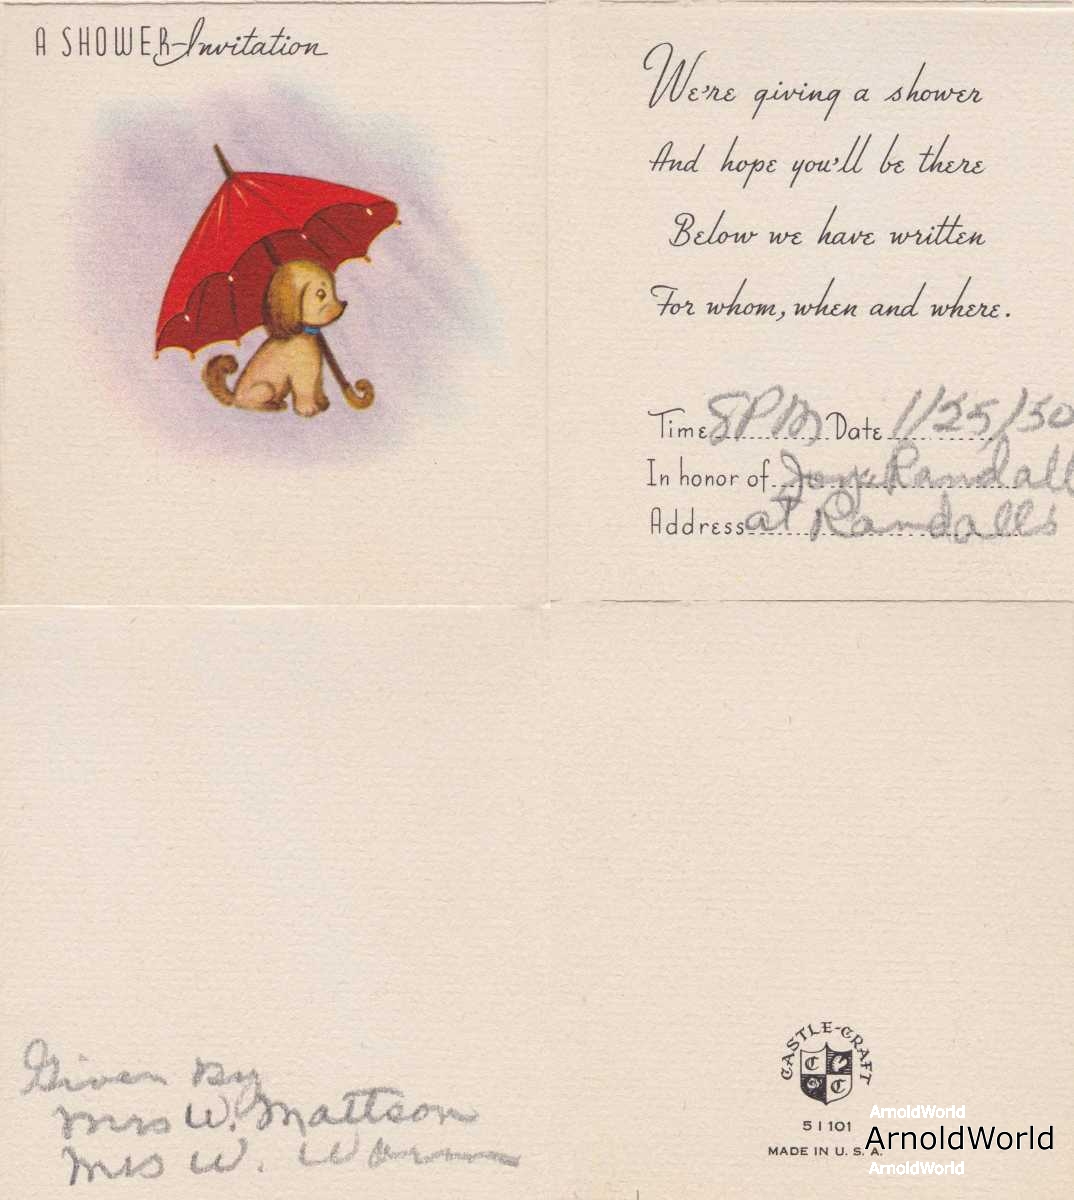 A SHOWER-Invitation
We're giving a shower
And hope you'll be there
Below we have written
For whom, when and where.
Time 8PM Date 1/25/50
In honor of Joy Randall
Address at Randalls
Given By
Mrs W. Mattson
Mrs W.
CASTLE-CRAFT
C
C
51101
MADE IN U. S. A.
ArnoldWorld
ArnoldWorld
ArnoldWorld